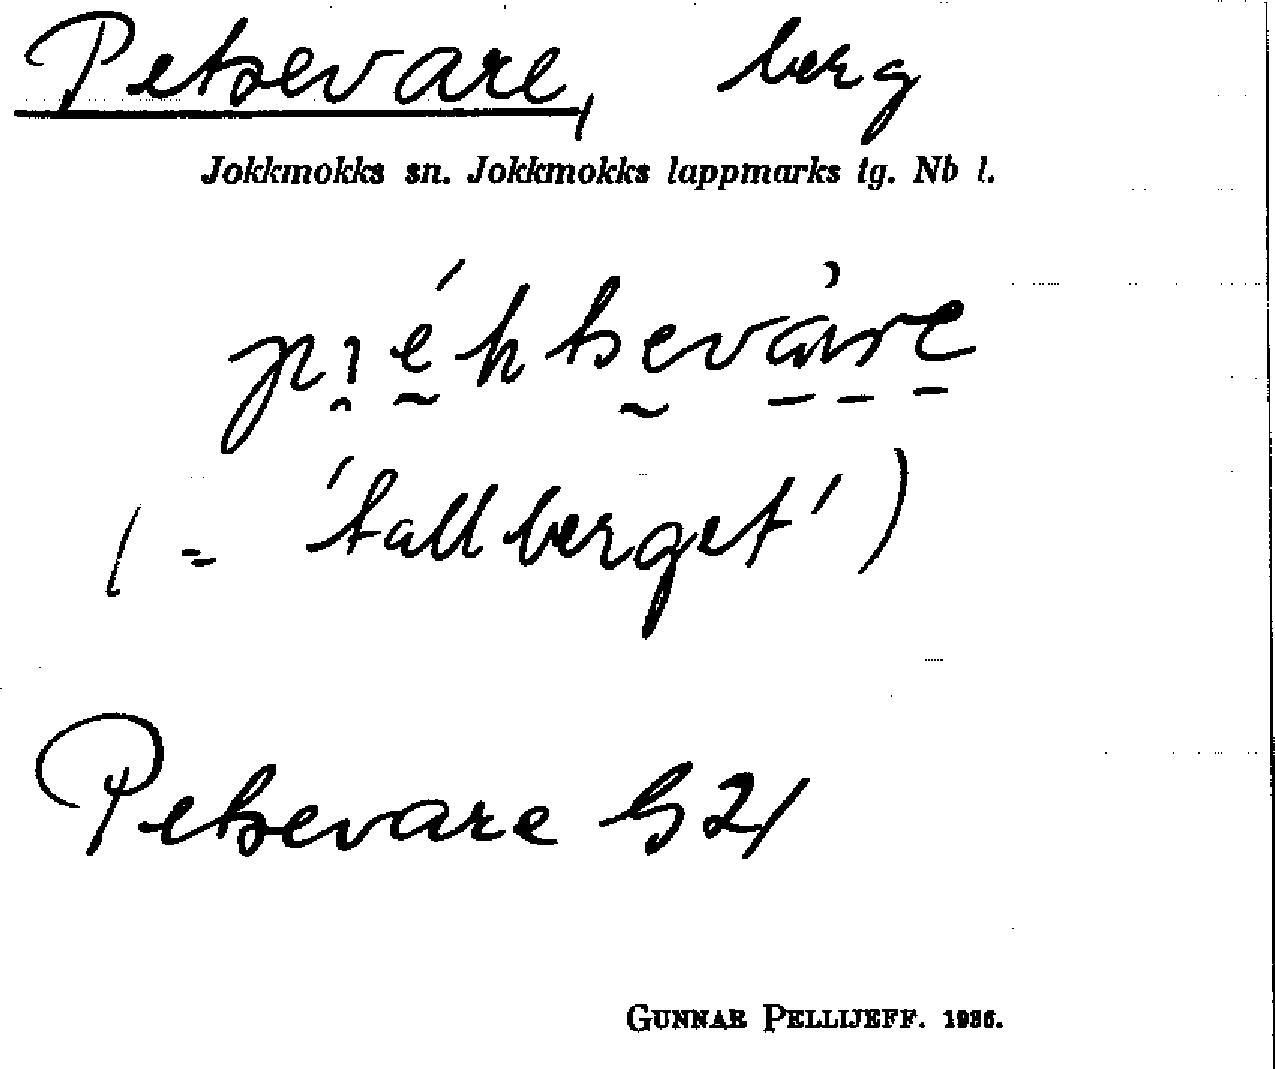 Petsevare, berg
Jokkmokks sn. Jokkmokks lappmarks tg. Nb l.
piéhtsevàre
(= 'tallberget')
Petsevare G21
GUNNAR PELLIJEFF. 1936.